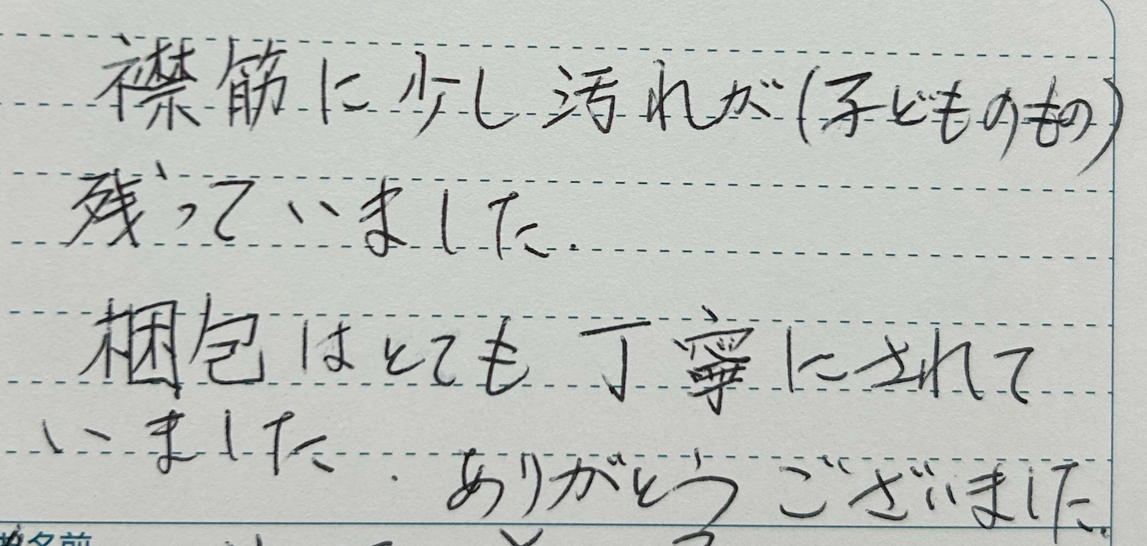 襟筋に少し汚れが(子どものもの)
残っていました.
梱包はとても丁寧にされて
いました. ありがとうございました.
名前